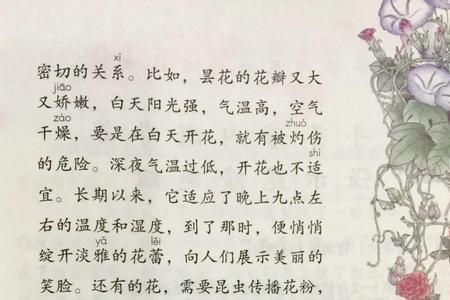 xì
密切的关系。比如，昙花的花瓣又大
jiāo
又娇嫩，白天阳光强，气温高，空气
zào zhuó
干燥，要是在白天开花，就有被灼伤
shì
的危险。深夜气温过低，开花也不适
宜。长期以来，它适应了晚上九点左
右的温度和湿度，到了那时，便悄悄
yǎ lěi
绽开淡雅的花蕾，向人们展示美丽的
笑脸。还有的花，需要昆虫传播花粉，